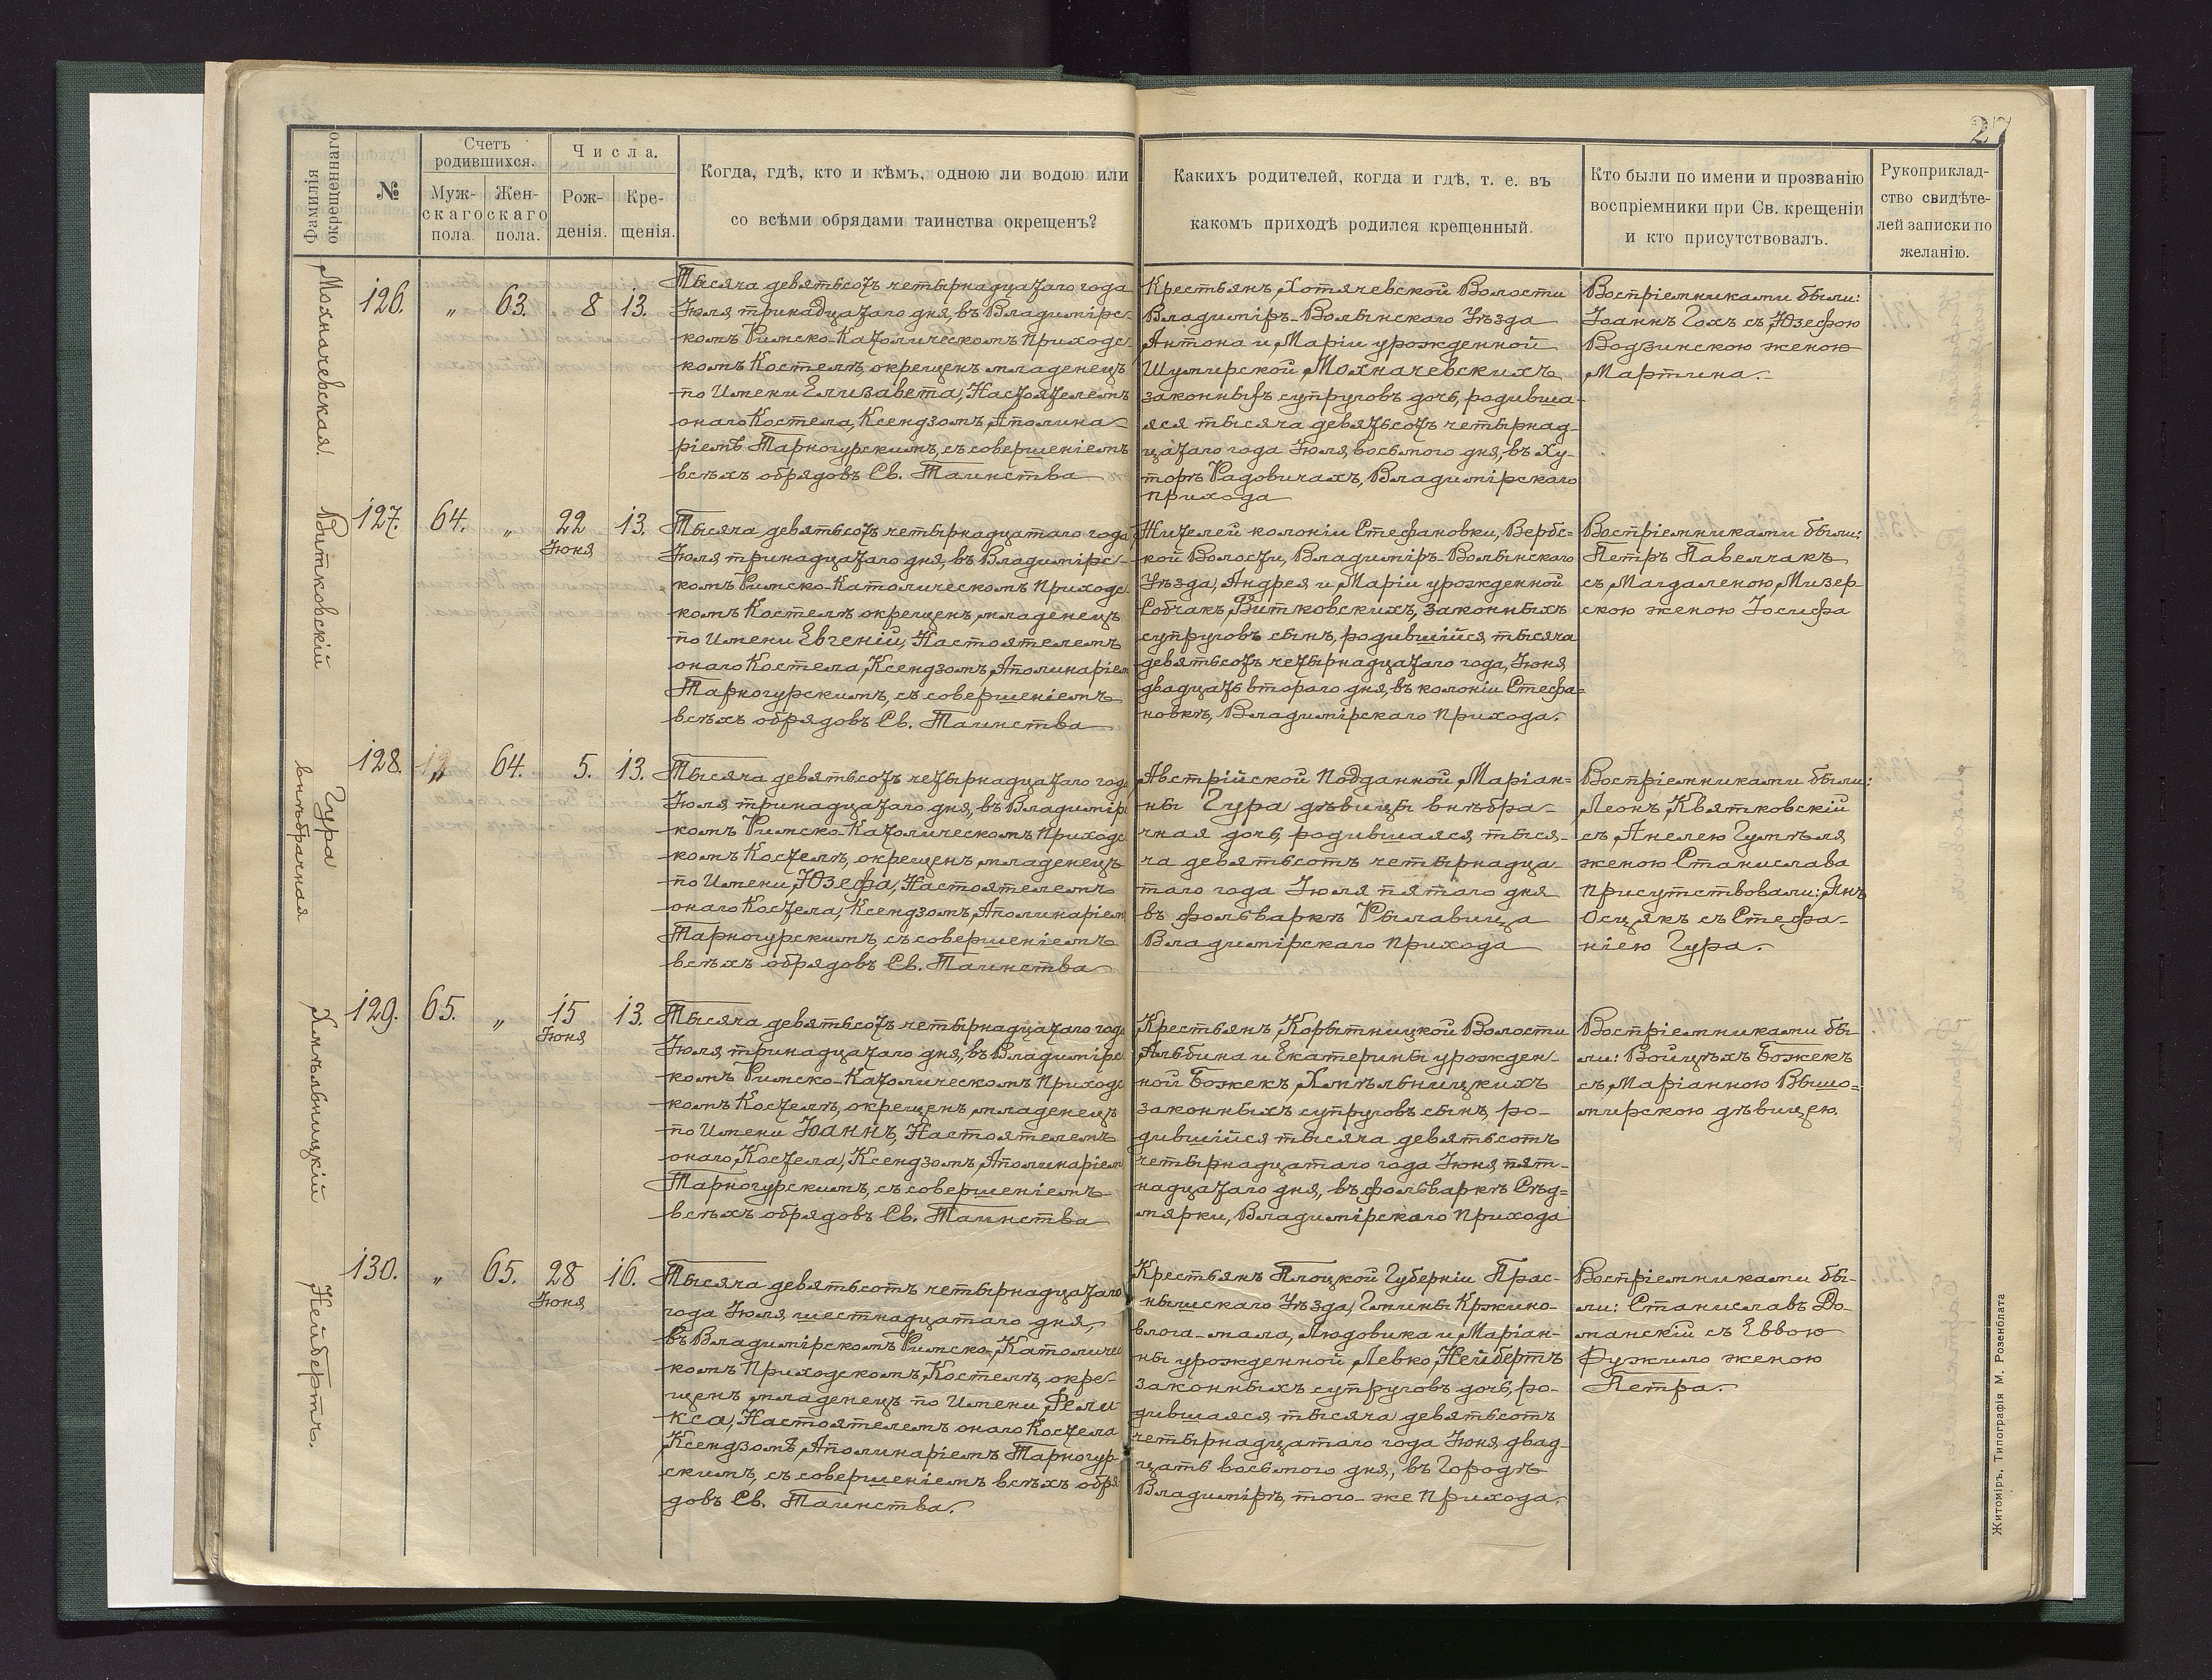 27
Фамилія
окрещеннаго
№
Счетъ
родившихся.
Муж-
скаго
пола.
Жен-
скаго
пола.
Числа.
Рож-
денія.
Кре-
щенія.
Когда, гдѣ, кто и кѣмъ, одною ли водою или
со всѣми обрядами таинства окрещенъ?
Какихъ родителей, когда и гдѣ, т. е. въ
какомъ приходѣ родился крещенный.
Кто были по имени и прозванію
воспріемники при Св. крещеніи
и кто присутствовалъ.
Рукоприклад-
ство свидѣте-
лей записки по
желанію.
Мохначевская.
126.
„
63.
8
13.
Тысяча девятьсотъ четырнадцатаго года
Іюля тринадцатаго дня, въ Владимірс-
комъ Римско-Католическомъ Приходс-
комъ Костелѣ, окрещенъ младенецъ
по Имени Елизавета, Настоятелемъ
онаго Костела, Ксендзомъ, Аполина-
ріемъ Тарногурскимъ, съ совершеніемъ
всѣхъ обрядовъ Св. Таинства
Крестьянъ, Хотячевской Волости
Владиміръ-Волынскаго Уѣзда
Антона и Маріи урожденной
Шумирской, Мохначевскихъ
законныхъ супруговъ дочь, родивша-
яся тысяча девятьсотъ четырнад-
цатаго года Іюля, восьмого дня, въ Ху-
торѣ Радовичахъ, Владимірскаго
прихода
Воспріемниками были:
Іоаннъ Гохъ съ Юзефою
Водзинскою женою
Мартина.
Витковскій
127.
64.
„
22
Іюня
13.
Тысяча девятьсотъ четырнадцатаго года
Іюля тринадцатаго дня, въ Владимірс-
комъ Римско-Католическомъ Приходс-
комъ Костелѣ окрещенъ, младенецъ
по Имени Евгеній, Настоятелемъ
онаго Костела, Ксендзомъ, Аполинаріем
Тарногурскимъ, съ совершеніемъ
всѣхъ обрядовъ Св. Таинства
Жителей колоніи Стефановки, Вербс=
кой Волости, Владиміръ-Волынскаго
Уѣзда, Андрея и Маріи урожденной
Собчакъ, Витковскихъ, законныхъ
супруговъ сынъ, родившійся тысяча
девятьсотъ четырнадцатаго года, Іюня
двадцать второго дня, въ колоніи Стефа=
новкѣ, Владимірскаго прихода.
Воспріемниками были:
Петръ Павелчакъ
съ Магдаленою, Мизер
скою женою Іосифа
Гура
внѣбрачная
128.
„
64.
5.
13.
Тысяча девятьсотъ четырнадцатаго года
Іюля тринадцатаго дня, въ Владимір
комъ Римско-Католическомъ Приходс
комъ Костелѣ, окрещенъ, младенецъ
по Имени, Юзефа, Настоятелемъ
онаго Костела, Ксендзомъ, Аполинаріем
Тарногурскимъ, съ совершеніемъ
всѣхъ обрядовъ Св. Таинства
Австрійской Подданной, Маріан=
ны Гура дѣвицы внѣбра-
чная дочь, родившаяся, тыся-
ча девятьсотъ четырнадца-
таго года Іюля пятаго дня
въ фольваркѣ Рылавица
Владимірскаго прихода
Воспріемниками были:
Леонъ Квятковскій
съ Анелею Гумѣля
женою Станислава
присутствовали: Янъ
Осцякъ съ Стефа-
ніею Гура.
Хмѣльницкій
129.
65.
„
15
Іюня
13.
Тысяча девятьсотъ четырнадцатаго года
Іюля тринадцатаго дня, въ Владимірс
комъ Римско-Католическомъ Приходс
комъ Костелѣ, окрещенъ, младенецъ
по Имени Іоаннъ, Настоятелемъ
онаго, Костела, Ксендзомъ, Аполинаріем
Тарногурскимъ, съ совершеніемъ
всѣхъ обрядовъ Св. Таинства
Крестьянъ, Корытницкой Волости
Альбина и Екатерины урожден-
ной Божекъ, Хмѣльницкихъ
законныхъ супруговъ сынъ, ро-
дившійся тысяча девятьсотъ
четырнадцатаго года Іюня, пят-
надцатаго дня, въ фольваркѣ Сѣд=
мярки, Владимірскаго прихода
Воспріемниками бы-
ли: Войцѣхъ Божекъ
съ, Маріанною Вышо=
мирскою дѣвицею.
Нейбертъ.
130.
„
65.
28
Іюня
16.
Тысяча девятьсотъ четырнадцатаго
года Іюля шестнадцатаго дня,
въ Владимірскомъ Римско-Католичес
комъ Приходскомъ, Костелѣ, окре-
щенъ младенецъ по Имени, Фели-
кса, Настоятелемъ онаго Костела
Ксендзомъ, Аполинаріемъ Тарногур-
скимъ, съ совершеніемъ всѣхъ обря
довъ Св. Таинства.
Крестьянъ Плоцкой Губерніи Прас-
нышскаго Уѣзда, Гмины Кржино-
влога-мала, Людовика и Маріан-
ны урожденной Левко, Нейбертъ
законныхъ супруговъ дочь, ро-
дившаяся тысяча девятьсотъ
четырнадцатаго года Іюня двад-
цать восьмого дня, въ Городѣ
Владимірѣ, того-же прихода.
Воспріемниками бы-
ли: Станиславъ До-
манскій съ Еввою
Фужило женою
Петра.
Житоміръ, Типографія М. Розенблата